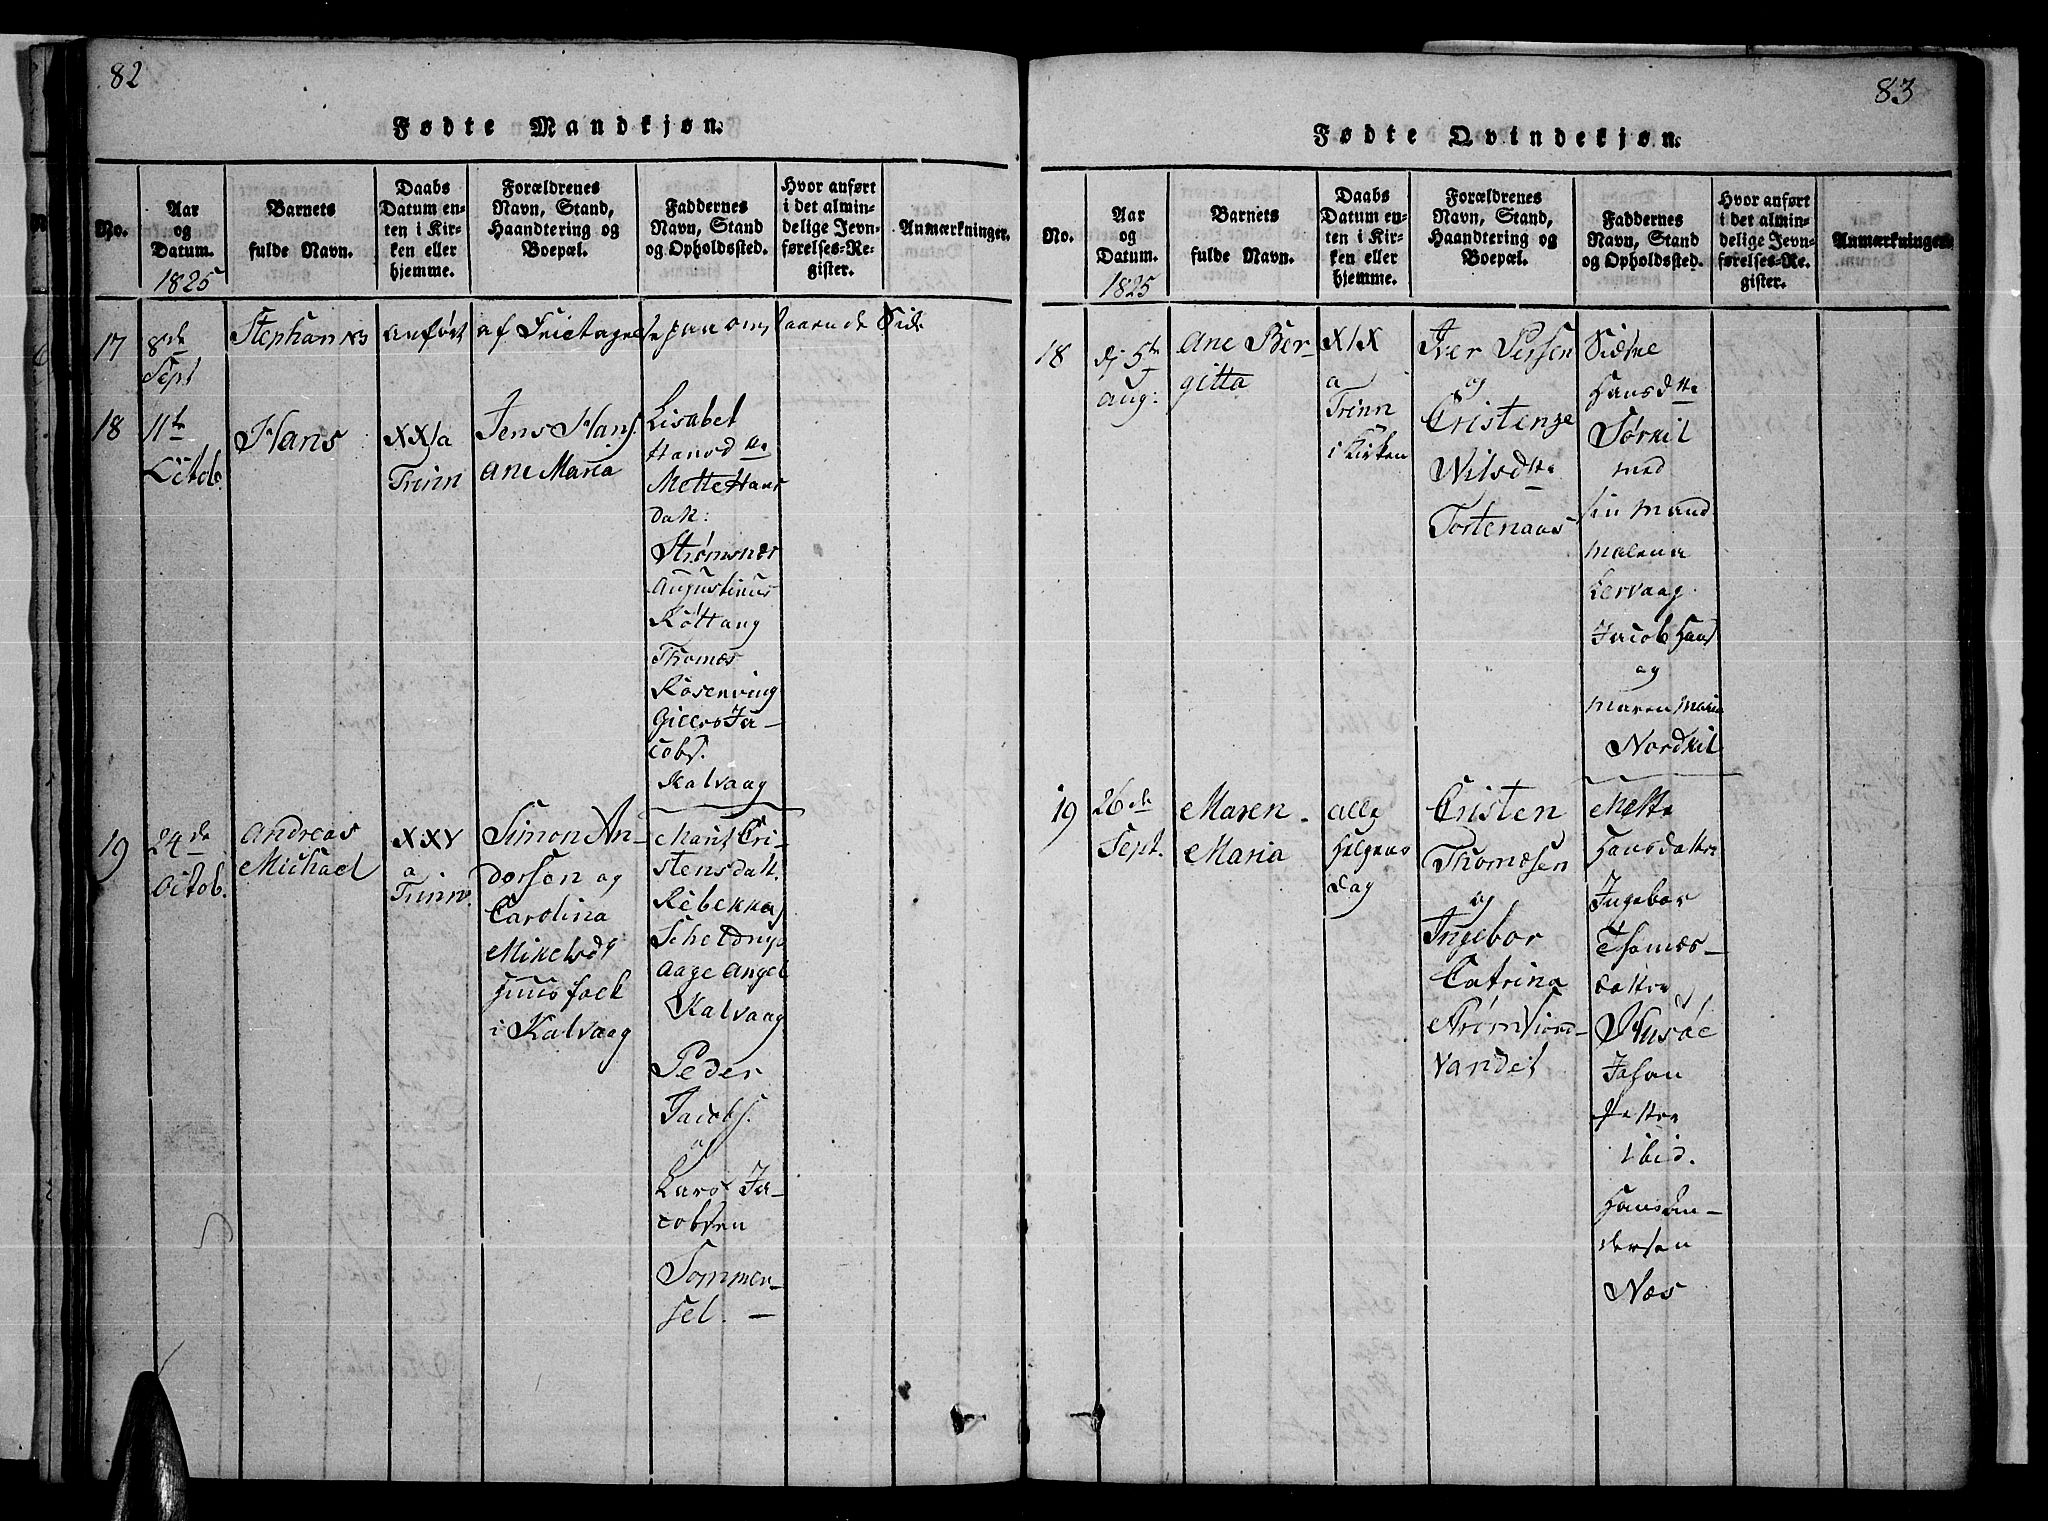 82
Fødte Mandkjøn.
No.
Aar
og
Datum.
1825
Barnets
fulde Navn.
Daabs
Datum en-
ten i Kir-
ken eller
hjemme.
Forældrenes
Navn, Stand,
Haandtering og
Boepæl.
Faddernes
Navn, Stand
og Opholdssted.
Hvor anført
i det almin-
delige Jevn-
førelses-Re-
gister.
Anmærkninger.
17
8de
Sept
Stephanus
anført
af
paa
Side
18
11te
Octob.
Hans
XXI a
Trinn
Jens Hans
Ane Maria
Lisabet
Hansd
Mette Hans
Datt:
Strømsnes
Augustinus
Røttang
Thomes
Rosenving
Ja-
cobs.
Kalvaag
19
24de
Octob.
Andreas
Michael
XXV
a
Trinn.
Simon An-
dersen og
Carolina
Mikelsd
Huusfolk
i Kalvaag
Marit Cri-
stensdatt.
Rebekka
Scheldrup
Aage Angel
Kalvaag
Peder
Jacobs.
og
Lars Ja-
cobsen
Sommer-
sel. —
83
Fødte Qvindekjøn.
No.
Aar
og
Datum.
1825
Barnets
fulde Navn.
Daabs
Datum en-
ten i Kir-
ken eller
hjemme.
Forældrenes
Navn, Stand,
Haandtering og
Boepæl.
Faddernes
Navn, Stand
og Opholdssted.
Hvor anført
i det almin-
delige Jevn-
førelses-Re-
gister.
Anmærkninger
18
5te
Aug:
Ane Ber-
gitta
XIX
a
Trinn
i Kirken
Iver Persen
og
Cristense
Nilsdtte
Tortenaas
Hansdtte
Sørkil
med
sin Mand
Malena
Lervaag
Jacob Hans
og
Maren Maria
Nordkil
19
26de
Sept.
Maren
Maria
Alle
Helgens
Dag
Cristen
Thomesen
og
Ingebor
Catrina
Vandet
Mette
Hansdatter
Ingebor
Thomæs-
datter
Husøe
Johan
Petter
ibid.
Hans An-
dersen
Næs